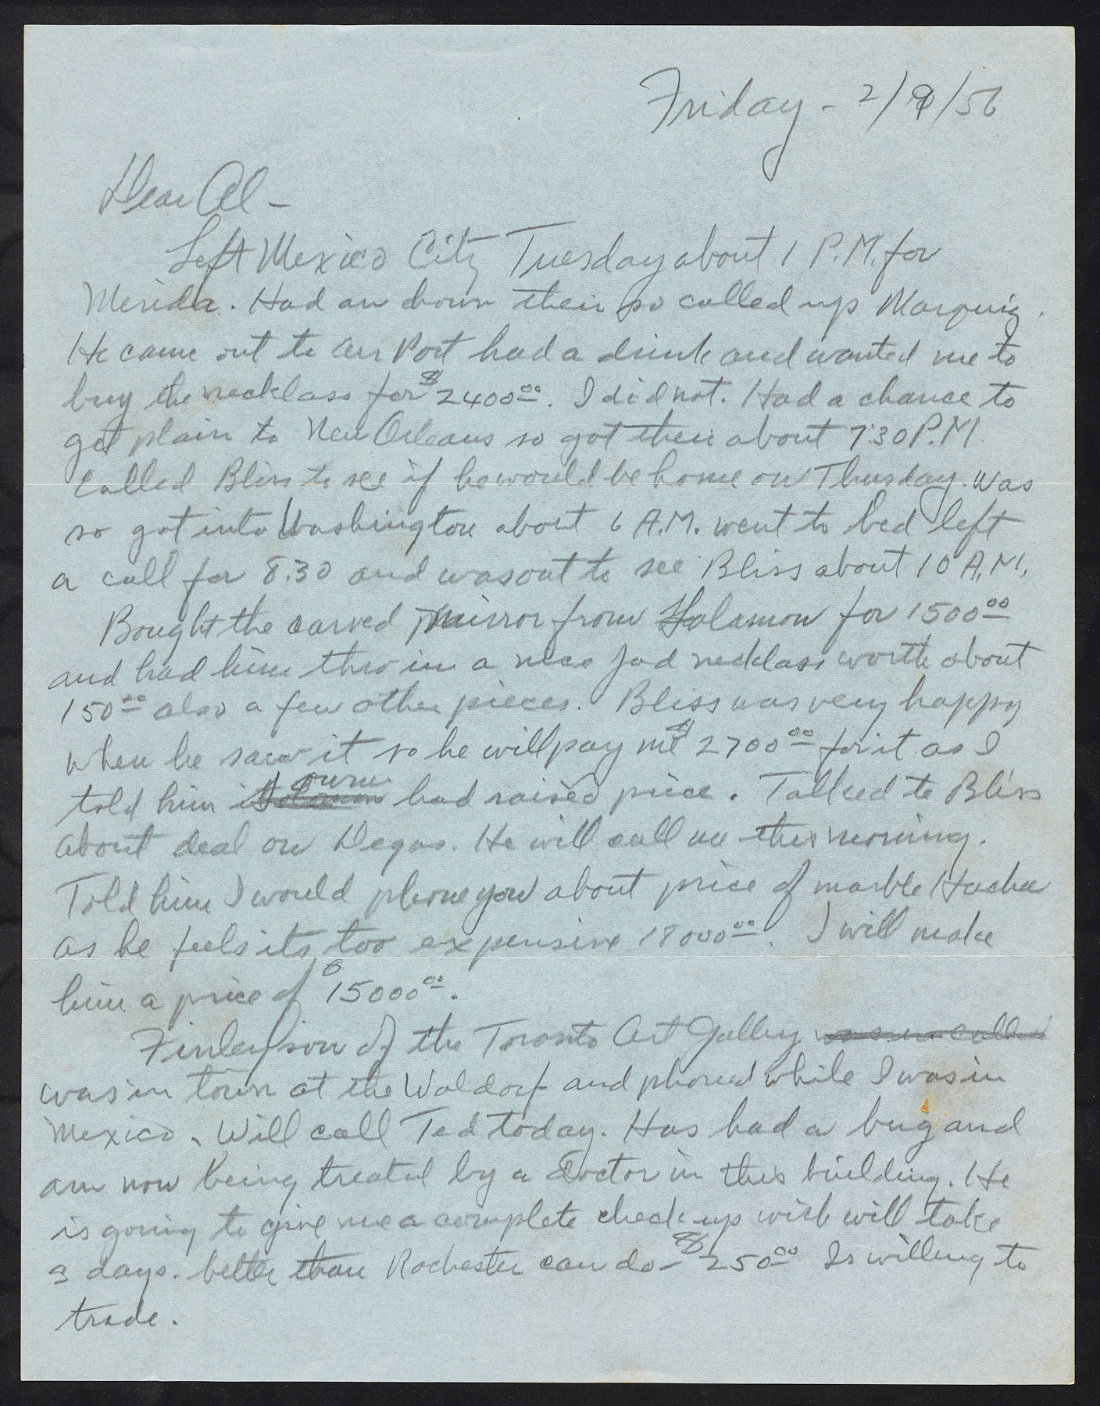 Friday - 2/9/56
Dear Al -
Left Mexico City Tuesday about 1 P.M. for
Merida. Had an hour their so called up Marquis.
He came out to air Port had a drink and wanted me to
buy the necklass for $2400.00. I did not. Had a chance to
get plain to New Orleans so got their about 7:30 P.M.
Called Bliss to see if he would be home on Thusday. Was
so got into Washington about 6 A.M. went to bed left
a call for 8.30 and was out to see Bliss about 10 A.M.
Bought the carved mirror from Salamon for 1500.00
and had him thro in a nice Jad necklass worth about
150.00 also a few other pieces. Bliss was very happy
when he saw it so he will pay me $2700.00 for it as I
told him owner had raised price. Talked to Bliss
about deal on Degas. He will call me this morning.
Told him I would phone you about price of marble Hacha
as he feels its too expensive 18000.00. I will make
him a price of $15000.00.
Finlayson of the Toronto Art Gallery was in called
was in town at the Waldorf and phoned while I was in
Mexico. Will call Ted today. Has had a bug and
am now being treated by a doctor in this building. He
is going to give me a complete check up wich will take
3 days. better than Rochester can do - $250.00 Is willing to
trade.